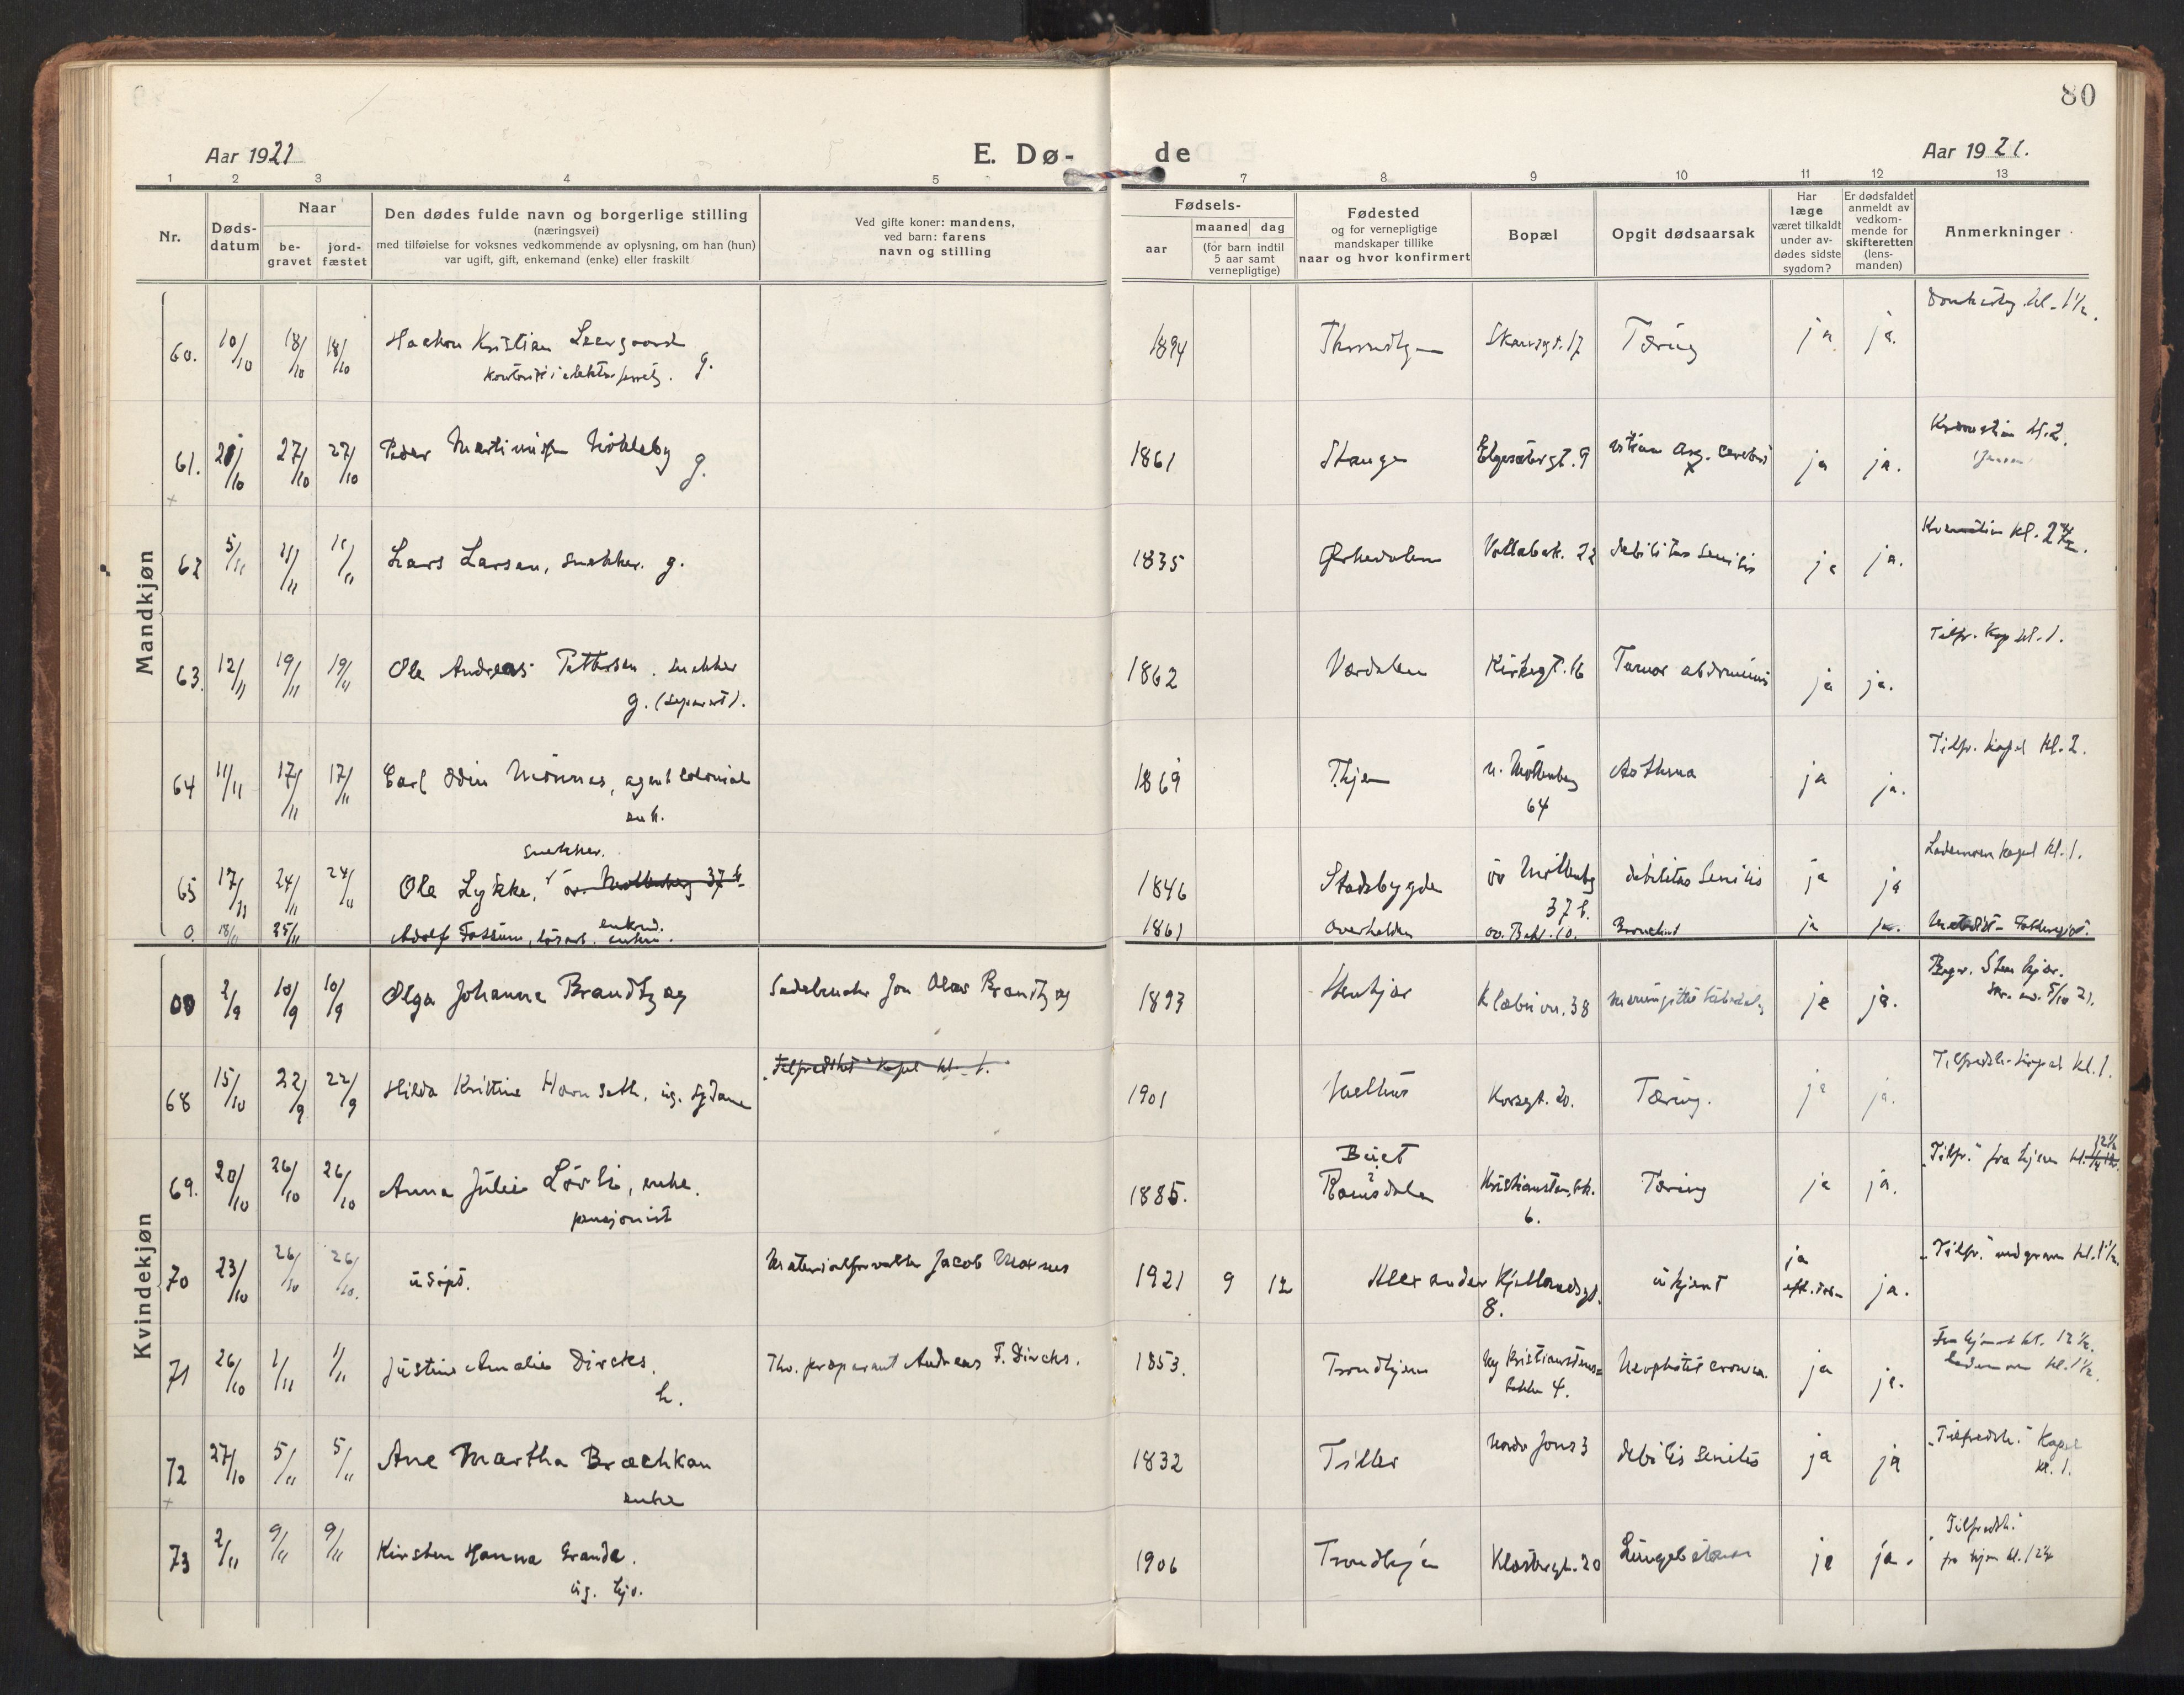 80
Aar 1921
E. Dø-
de
Aar 1921.
1 2 3 4 5
7 8 9 10 11 12 13
Nr.
Døds-
datum
Naar
be-
gravet
jord-
fæstet
Den dødes fulde navn og borgerlige stilling
(næringsvei)
med tilføielse for voksnes vedkommende av oplysning, om han (hun)
var ugift, gift, enkemand (enke) eller fraskilt
Ved gifte koner: mandens,
ved barn: farens
navn og stilling
Fødsels-
aar
maaned dag
(for barn indtil
5 aar samt
vernepligtige)
Fødested
og for vernepligtige
mandskaper tillike
naar og hvor konfirmert
Bopæl
Opgit dødsaarsak
Har
læge
været tilkaldt
under av-
dødes sidste
sygdom?
Er dødsfaldet
anmeldt av
vedkom-
mende for
skifteretten
(lens-
manden)
Anmerkninger
Mandkjøn
60. 10/10 18/10 18/10 Haakon Kristian Leergaard g. 1894 17 Tæring ja ja. kl. 1½.
61. 10 27/10 27/10 Peder g. 1861 Stange Elgesætergt. 9 ja ja. kl. 2.
62 5/11 11/11 11/11 Lars Larsen, snekker. g. 1835 Ørkedalen Vollabak. 22 debilitas senilis ja ja. kl. 2
63. 12/11 19/11 19/11 Ole Andreas Pettersen. snekker 1862 Værdalen Kirkegt. 16 Tumor abdominis ja ja. Tilfr. Kap kl. 1.
g. (separert).
64 11/11 17/11 17/11 Carl Odin agent colonial 1869 n. Möllenberg Asthma ja ja. Tilfr. kapel kl. 2.
enk. 64
snekker.
65 17/11 24/11 24/11 Ole Lykke, öv. Möllenberg 37 b 1846 Stadsbygden öv Möllenbg debilitas senilis ja ja Lademoen kapel kl. 1.
37 b.
0. 18/11 25/11 Adolf Fossum, lösarb. enkem. 1861 Overhalden öv. Bakl. 10. ja ja.
Kvindekjøn
00 2/9 10/9 10/9 Olga Johanne Brandtzæg Jon Olav Brandtzæg 1893 Stenkjær Klæbuvn. 38 ja ja. Begr. Stenkjær.
5/10 21.
„Tilfredshet" kapel kl. 1.
68 15/10 22/9 22/9 Hilda Kristine ug. sydame 1901 Melhus Korsgt. 20. Tæring. ja ja. Tilfredsh. kapel kl. 1.
Buet
69. 20/10 26/10 26/10 Anna Julie Lövli, enke. 1885. Romsdalen Kristianstensbk. Tæring ja ja. „Tilfr." fra hjem kl. 12½
pensjonist 6.
70 23/10 26/10 26/10. udöpt. Materialforvalter Jacob 1921 9 12 Alexander Kjellandsgt. ukjent ja ja. „Tilfr." ved graven kl. 1½.
8.
71 26/10 1/11 1/11 Justine Amalie Dircks. Andreas F. Dircks. 1853. Trondhjem Ny Kristianstens- ja ja. Fra hjemmet kl. 12½.
h. bakke 4. Lademoen kl. 1½.
72 27/10 5/11 5/11 Ane Martha Brækkan 1832 Tiller 3 debilis senilis ja ja „Tilfredsh." Kapel
enke kl. 1.
73 2/11 9/11 9/11 Kirsten Hanna Grande. 1906 Trondhjem Klostergt. 20 ja ja. „Tilfredsh."
ug. hjv. fra hjem kl. 12½